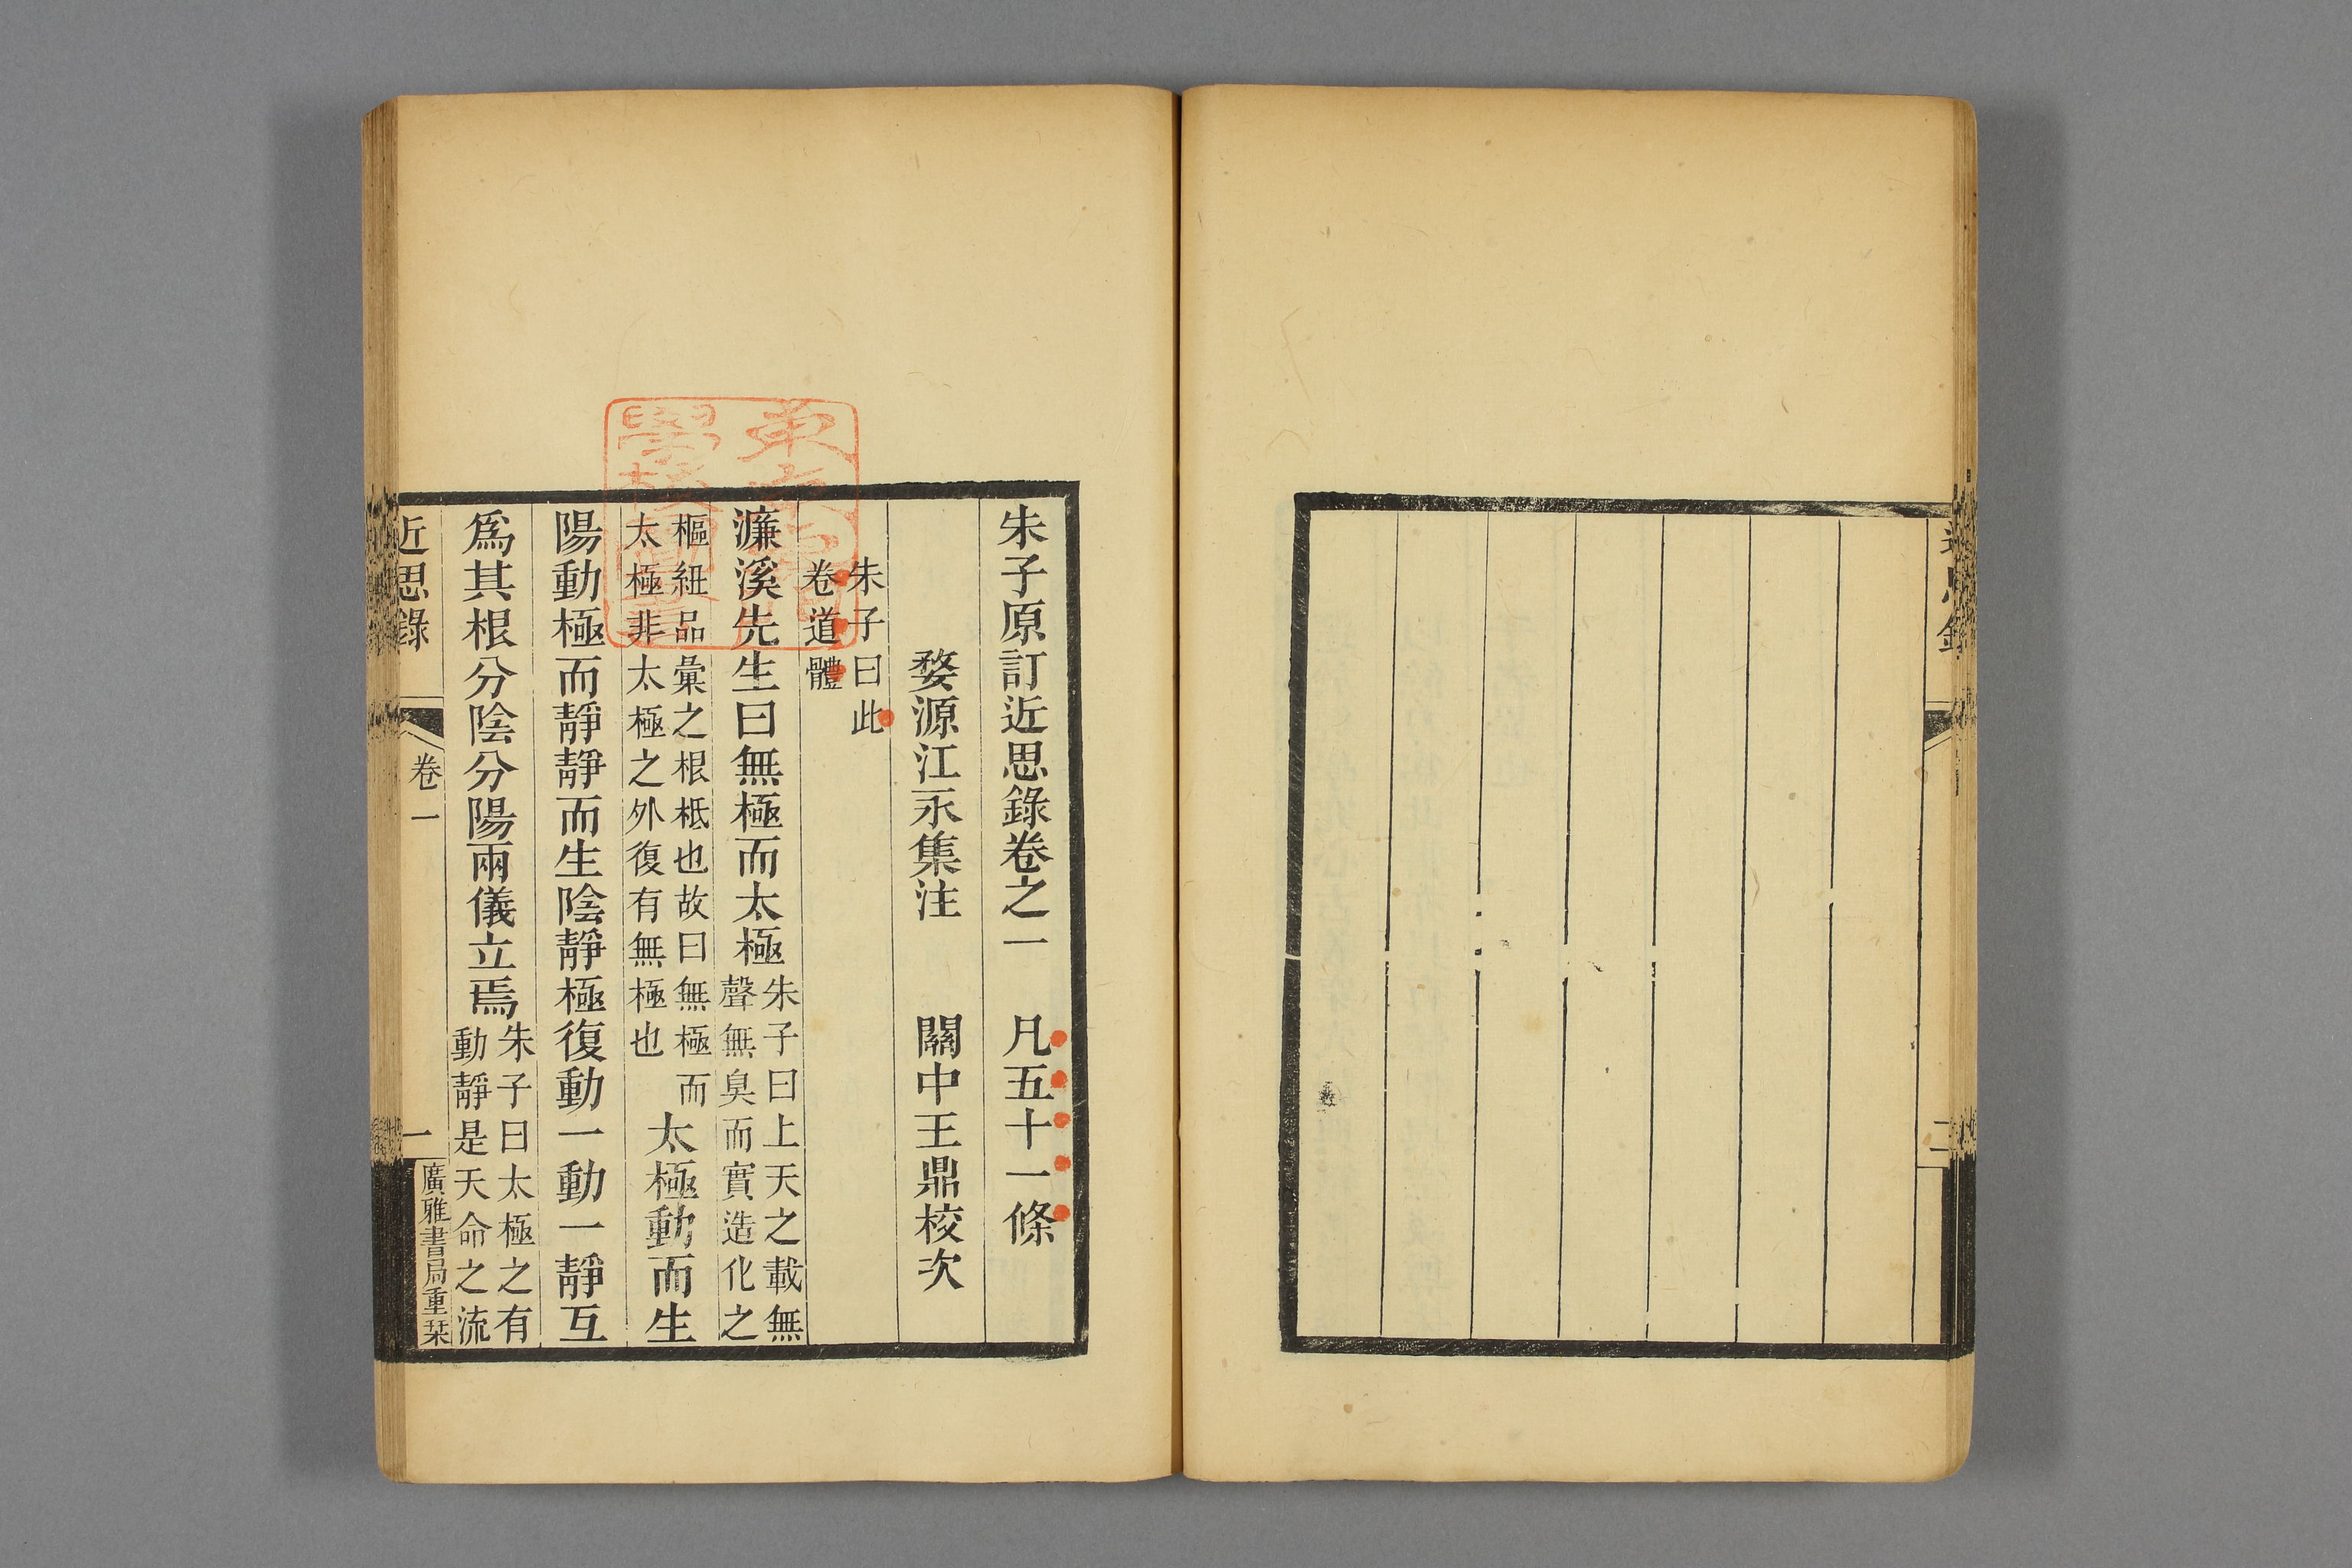 朱子原訂近思錄卷之一　凡五十一條
婺源江永集注　關中王鼎校次
朱子曰此
卷道體
濂溪先生曰無極而太極
朱子曰上天之載無
聲無臭而實造化之
樞紐品彙之根柢也故曰無極而
太極非太極之外復有無極也
太極動而生
陽動極而靜靜而生陰靜極復動一動一靜互
爲其根分陰分陽兩儀立焉
朱子曰太極之有
動靜是天命之流
近思錄
卷一
一
廣雅書局重栞